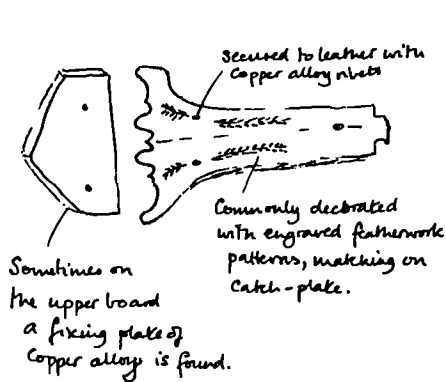 Secured to leather with
Copper alloy rivets
Commonly decorated
with engraved featherwork
patterns, matching on
Catch-plate.
Sometimes on
the upper board
a fixing plate of
Copper alloys is found.